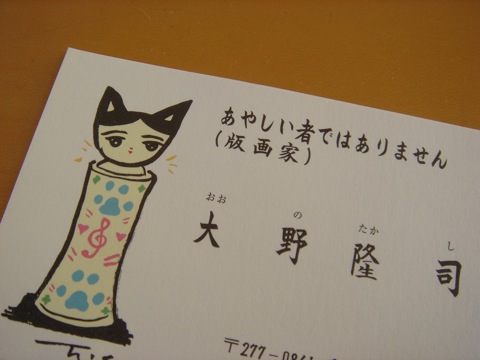 あやしい者ではありません
(版画家)
おお の たか し
大野隆司
〒277-0861